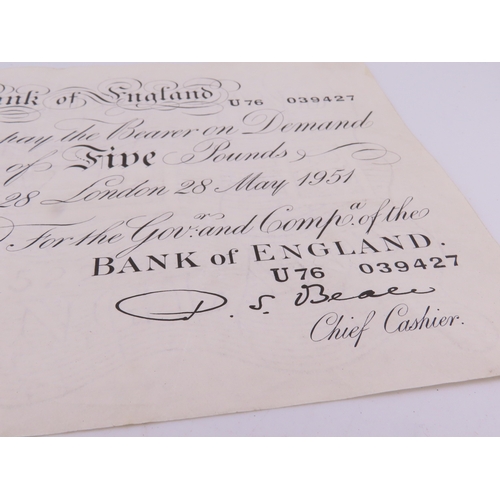 Bank of England U76 039427
pay the Bearer on Demand
of Five Pounds
28 London 28 May 1951
For the Gov.r and Comp.a of the
BANK of ENGLAND.
U76 039427
P. S. Beale
Chief Cashier.